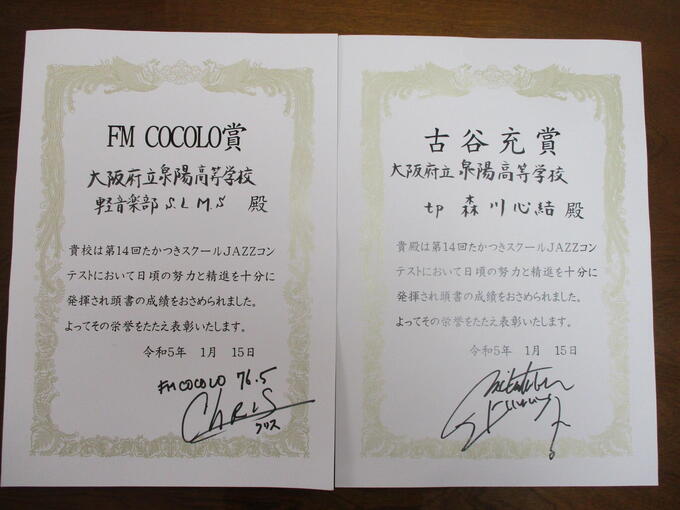 FM COCOLO賞
大阪府立泉陽高等学校
軽音楽部 S.L.M.S 殿
貴校は第14回たかつきスクールJAZZコン
テストにおいて日頃の努力と精進を十分に
発揮され頭書の成績をおさめられました。
よってその栄誉をたたえ表彰いたします。
令和5年 1月 15日
FM COCOLO 76.5
CHRIS
クリス
古谷充賞
大阪府立泉陽高等学校
tp 森川心結 殿
貴殿は第14回たかつきスクールJAZZコン
テストにおいて日頃の努力と精進を十分に
発揮され頭書の成績をおさめられました。
よってその栄誉をたたえ表彰いたします。
令和5年 1月 15日